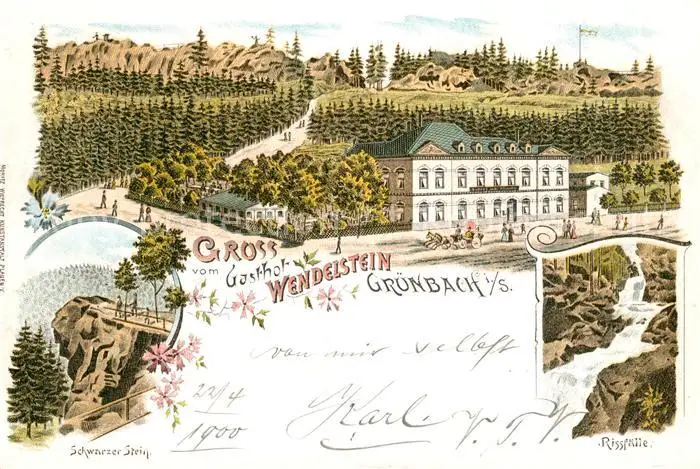 GROSS
vom Gasthof
WENDELSTEIN
GRÜNBACH i/S.
von mir selbst
22/4
1900
Karl
Schwarzer Stein.
Rissfälle.